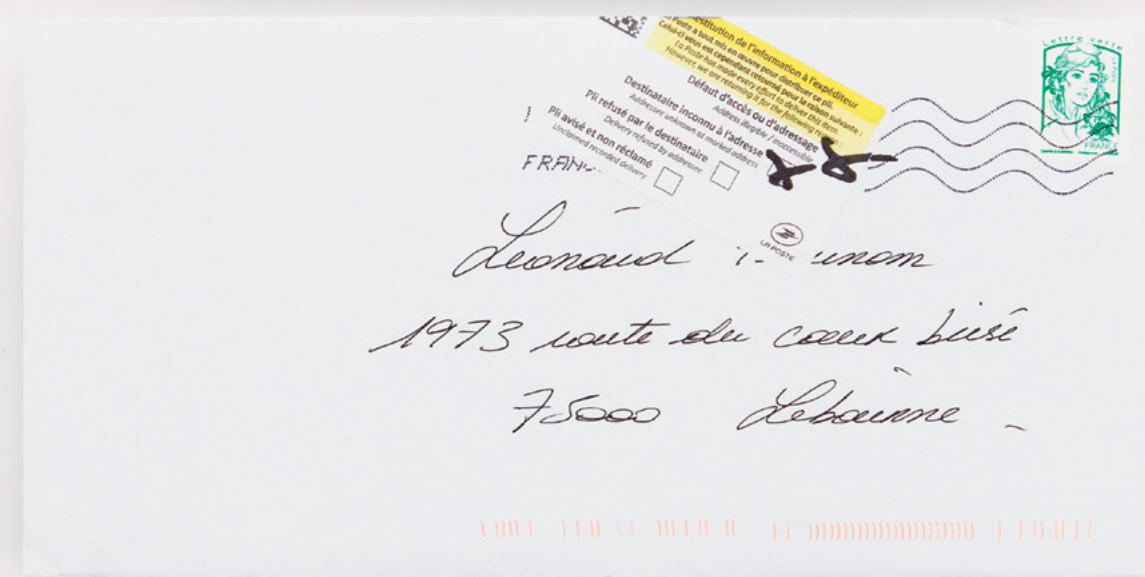 Restitution de l'information à l'expéditeur
La Poste a tout mis en œuvre pour distribuer ce pli.
Celui-ci vous est cependant retourné pour la raison suivante :
La Poste has made every effort to deliver this item.
However, we are returning it for the following reason :
Défaut d'accès ou d'adressage
Address illegible / inaccessible
Destinataire inconnu à l'adresse
Addressee unknown at marked address
Pli refusé par le destinataire
Delivery refused by addressee
Pli avisé et non réclamé
Unclaimed recorded delivery
LA POSTE
Lettre verte
La Poste
FRANCE
Léonard
1973 route du cœur brisé
75000 Lebourne